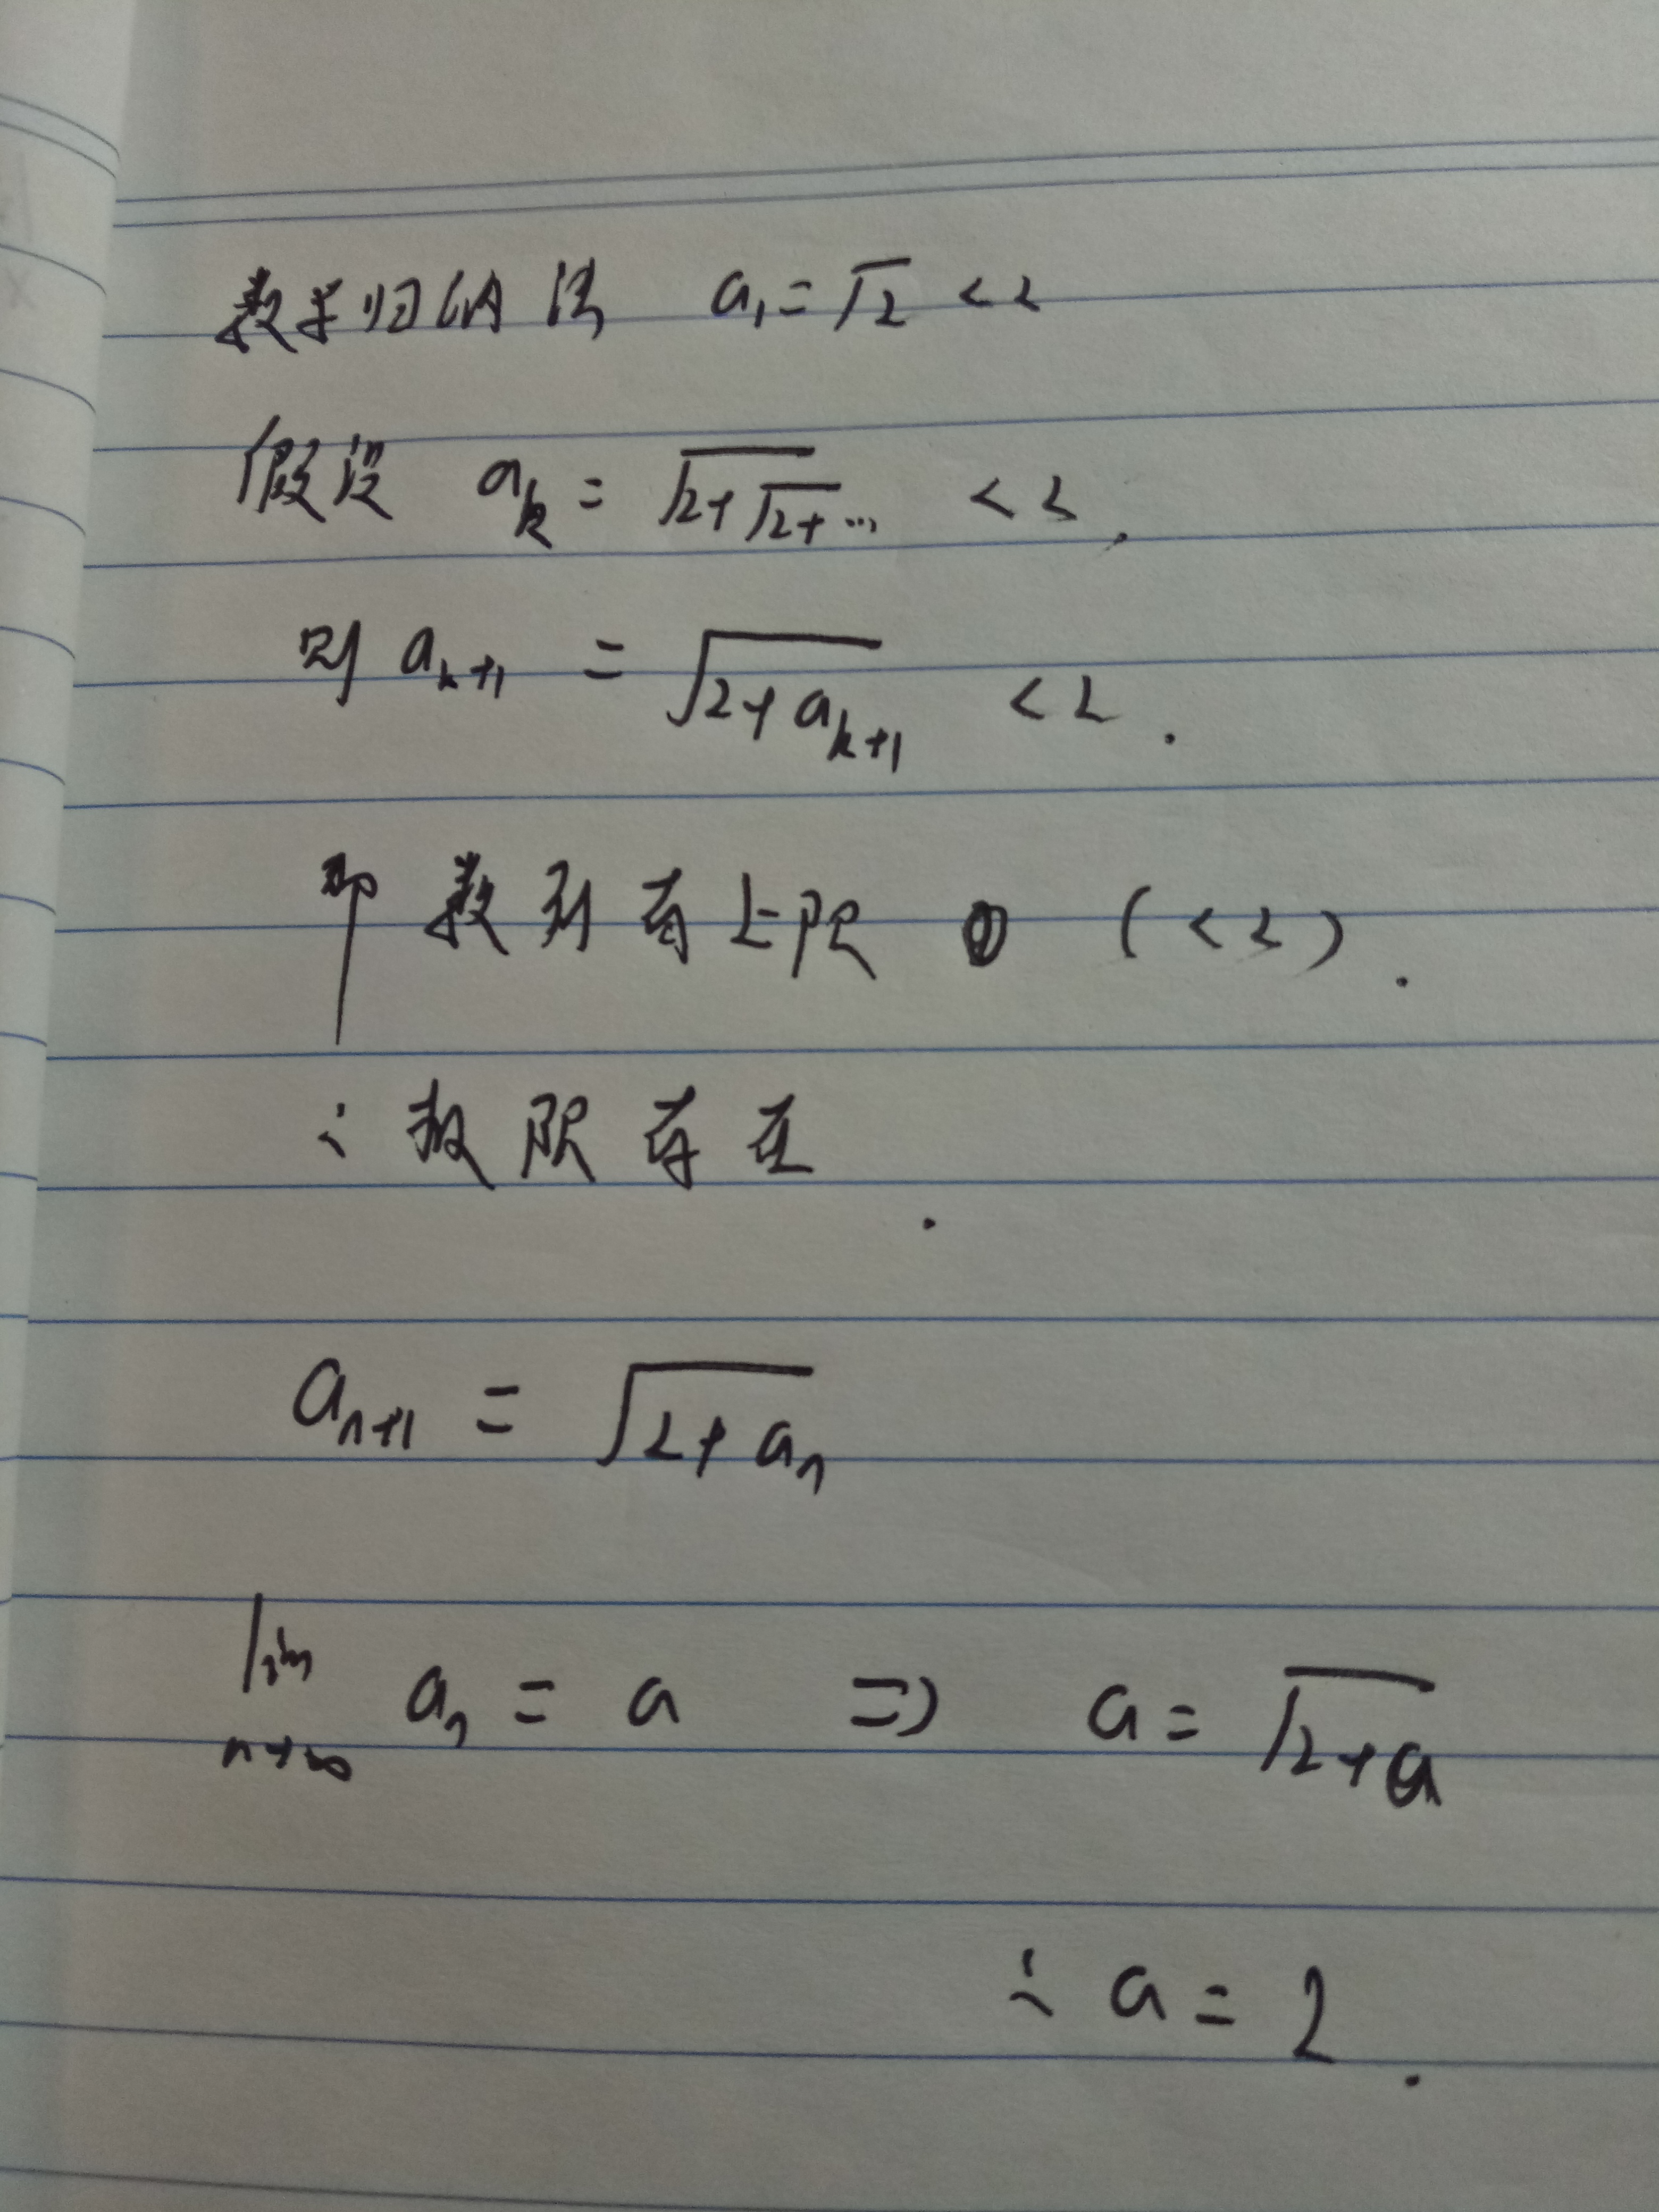 数学归纳法 a₁ = √2 < 2
假设 aₖ = √(2+√(2+… < 2,
则 aₖ₊₁ = √(2+aₖ₊₁) < 2.
即数列有上限 (<2).
∴ 极限存在.
aₙ₊₁ = √(2+aₙ)
lim n→∞ aₙ = a ⇒ a = √(2+a)
∴ a = 2.